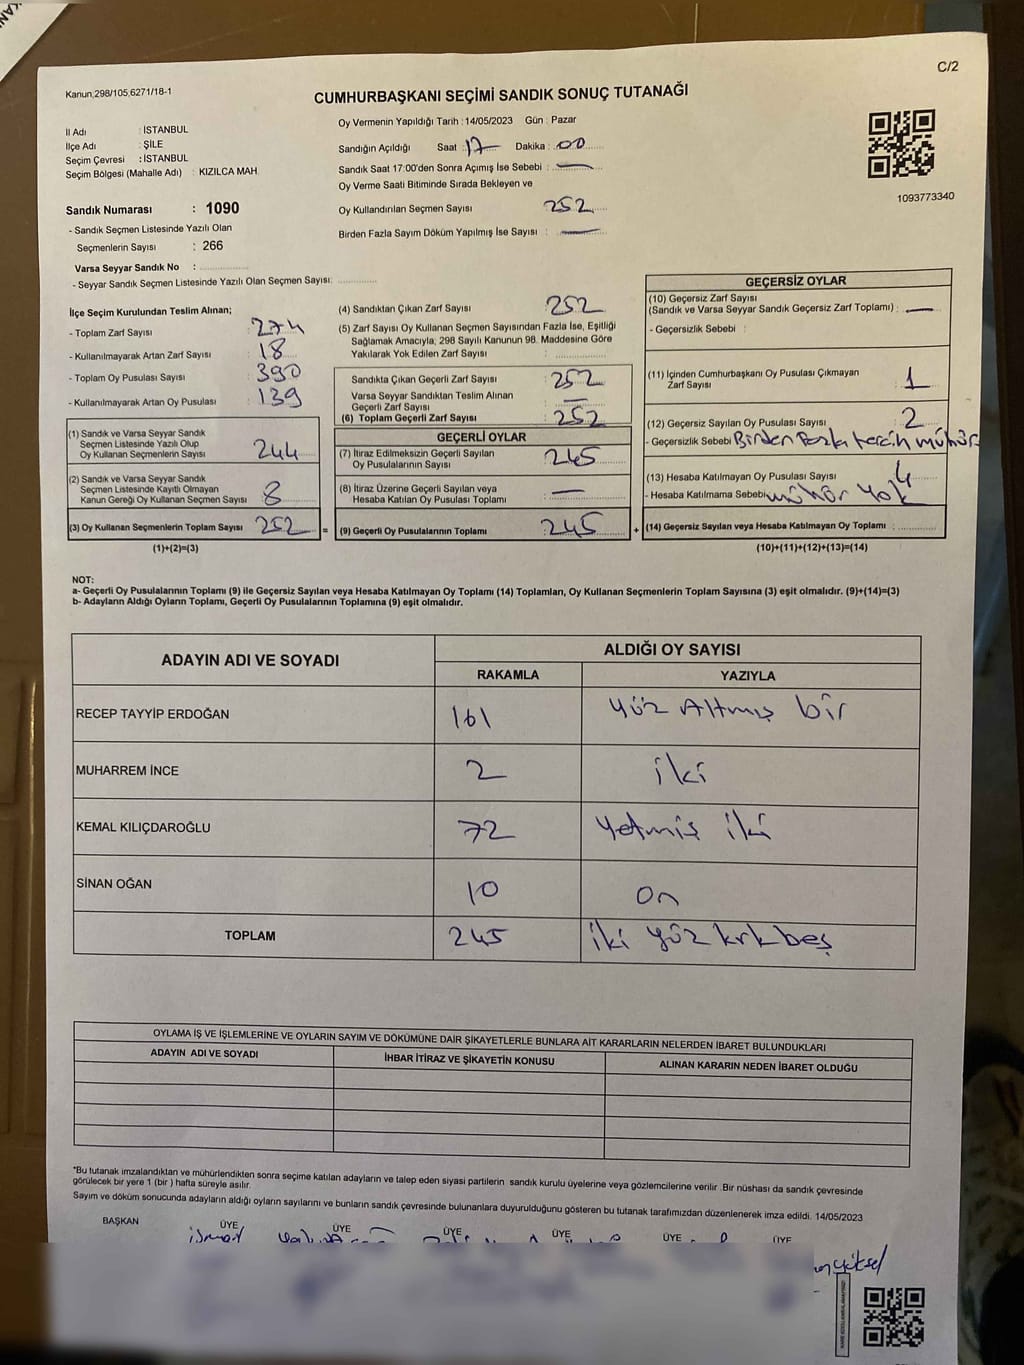 C/2
Kanun,298/105,6271/18-1
CUMHURBAŞKANI SEÇİMİ SANDIK SONUÇ TUTANAĞI
İl Adı : İSTANBUL
İlçe Adı : ŞİLE
Seçim Çevresi : İSTANBUL
Seçim Bölgesi (Mahalle Adı) : KIZILCA MAH.
Oy Vermenin Yapıldığı Tarih : 14/05/2023 Gün : Pazar
Sandığın Açıldığı Saat : 17 Dakika : 00
Sandık Saat 17:00'den Sonra Açımış İse Sebebi : —
Oy Verme Saati Bitiminde Sırada Bekleyen ve
Oy Kullandırılan Seçmen Sayısı 252
Birden Fazla Sayım Döküm Yapılmış İse Sayısı : —
1093773340
Sandık Numarası : 1090
- Sandık Seçmen Listesinde Yazılı Olan
Seçmenlerin Sayısı : 266
Varsa Seyyar Sandık No :
- Seyyar Sandık Seçmen Listesinde Yazılı Olan Seçmen Sayısı:
İlçe Seçim Kurulundan Teslim Alınan;
- Toplam Zarf Sayısı : 274
- Kullanılmayarak Artan Zarf Sayısı : 18
- Toplam Oy Pusulası Sayısı : 390
- Kullanılmayarak Artan Oy Pusulası : 139
(1) Sandık ve Varsa Seyyar Sandık
Seçmen Listesinde Yazılı Olup
Oy Kullanan Seçmenlerin Sayısı : 244
(2) Sandık ve Varsa Seyyar Sandık
Seçmen Listesinde Kayıtlı Olmayan
Kanun Gereği Oy Kullanan Seçmen Sayısı : 8
(3) Oy Kullanan Seçmenlerin Toplam Sayısı : 252
(1)+(2)=(3)
(4) Sandıktan Çıkan Zarf Sayısı : 252
(5) Zarf Sayısı Oy Kullanan Seçmen Sayısından Fazla İse, Eşitliği
Sağlamak Amacıyla; 298 Sayılı Kanunun 98. Maddesine Göre
Yakılarak Yok Edilen Zarf Sayısı :
Sandıkta Çıkan Geçerli Zarf Sayısı : 252
Varsa Seyyar Sandıktan Teslim Alınan
Geçerli Zarf Sayısı : —
(6) Toplam Geçerli Zarf Sayısı : 252
GEÇERLİ OYLAR
(7) İtiraz Edilmeksizin Geçerli Sayılan
Oy Pusulasının Sayısı : 245
(8) İtiraz Üzerine Geçerli Sayılan veya
Hesaba Katılan Oy Pusulası Toplamı : —
= (9) Geçerli Oy Pusulalarının Toplamı : 245
GEÇERSİZ OYLAR
(10) Geçersiz Zarf Sayısı
(Sandık ve Varsa Seyyar Sandık Geçersiz Zarf Toplamı) : —
- Geçersizlik Sebebi :
(11) İçinden Cumhurbaşkanı Oy Pusulası Çıkmayan
Zarf Sayısı : 1
(12) Geçersiz Sayılan Oy Pusulası Sayısı : 2
- Geçersizlik Sebebi Birden Fazla tercih mühür
(13) Hesaba Katılmayan Oy Pusulası Sayısı : 4
- Hesaba Katılmama Sebebi mühür yok
+ (14) Geçersiz Sayılan veya Hesaba Katılmayan Oy Toplamı :
(10)+(11)+(12)+(13)=(14)
NOT:
a- Geçerli Oy Pusulalarının Toplamı (9) ile Geçersiz Sayılan veya Hesaba Katılmayan Oy Toplamı (14) Toplamları, Oy Kullanan Seçmenlerin Toplam Sayısına (3) eşit olmalıdır. (9)+(14)=(3)
b- Adayların Aldığı Oyların Toplamı, Geçerli Oy Pusulalarının Toplamına (9) eşit olmalıdır.
ADAYIN ADI VE SOYADI ALDIĞI OY SAYISI
RAKAMLA YAZIYLA
RECEP TAYYİP ERDOĞAN 161 yüz Altmış bir
MUHARREM İNCE 2 iki
KEMAL KILIÇDAROĞLU 72 yetmiş iki
SİNAN OĞAN 10 on
TOPLAM 245 iki yüz kırkbeş
OYLAMA İŞ VE İŞLEMLERİNE VE OYLARIN SAYIM VE DÖKÜMÜNE DAİR ŞİKAYETLERLE BUNLARA AİT KARARLARIN NELERDEN İBARET BULUNDUKLARI
ADAYIN ADI VE SOYADI İHBAR İTİRAZ VE ŞİKAYETİN KONUSU ALINAN KARARIN NEDEN İBARET OLDUĞU
*Bu tutanak imzalandıktan ve mühürlendikten sonra seçime katılan adayların ve talep eden siyasi partilerin sandık kurulu üyelerine veya gözlemcilerine verilir .Bir nüshası da sandık çevresinde
görülecek bir yere 1 (bir ) hafta süreyle asılır.
Sayım ve döküm sonucunda adayların aldığı oyların sayılarını ve bunların sandık çevresinde bulunanlara duyurulduğunu gösteren bu tutanak tarafımızdan düzenlenerek imza edildi. 14/05/2023
BAŞKAN ÜYE ÜYE ÜYE ÜYE ÜYE ÜYE
yüksel